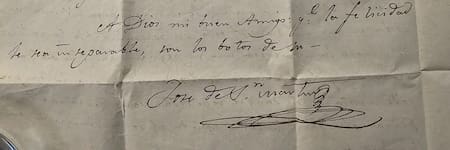 A Dios mi buen Amigo: y q.e la felicidad
le sea inseparable, son los botos de su —
José de S.n Martin